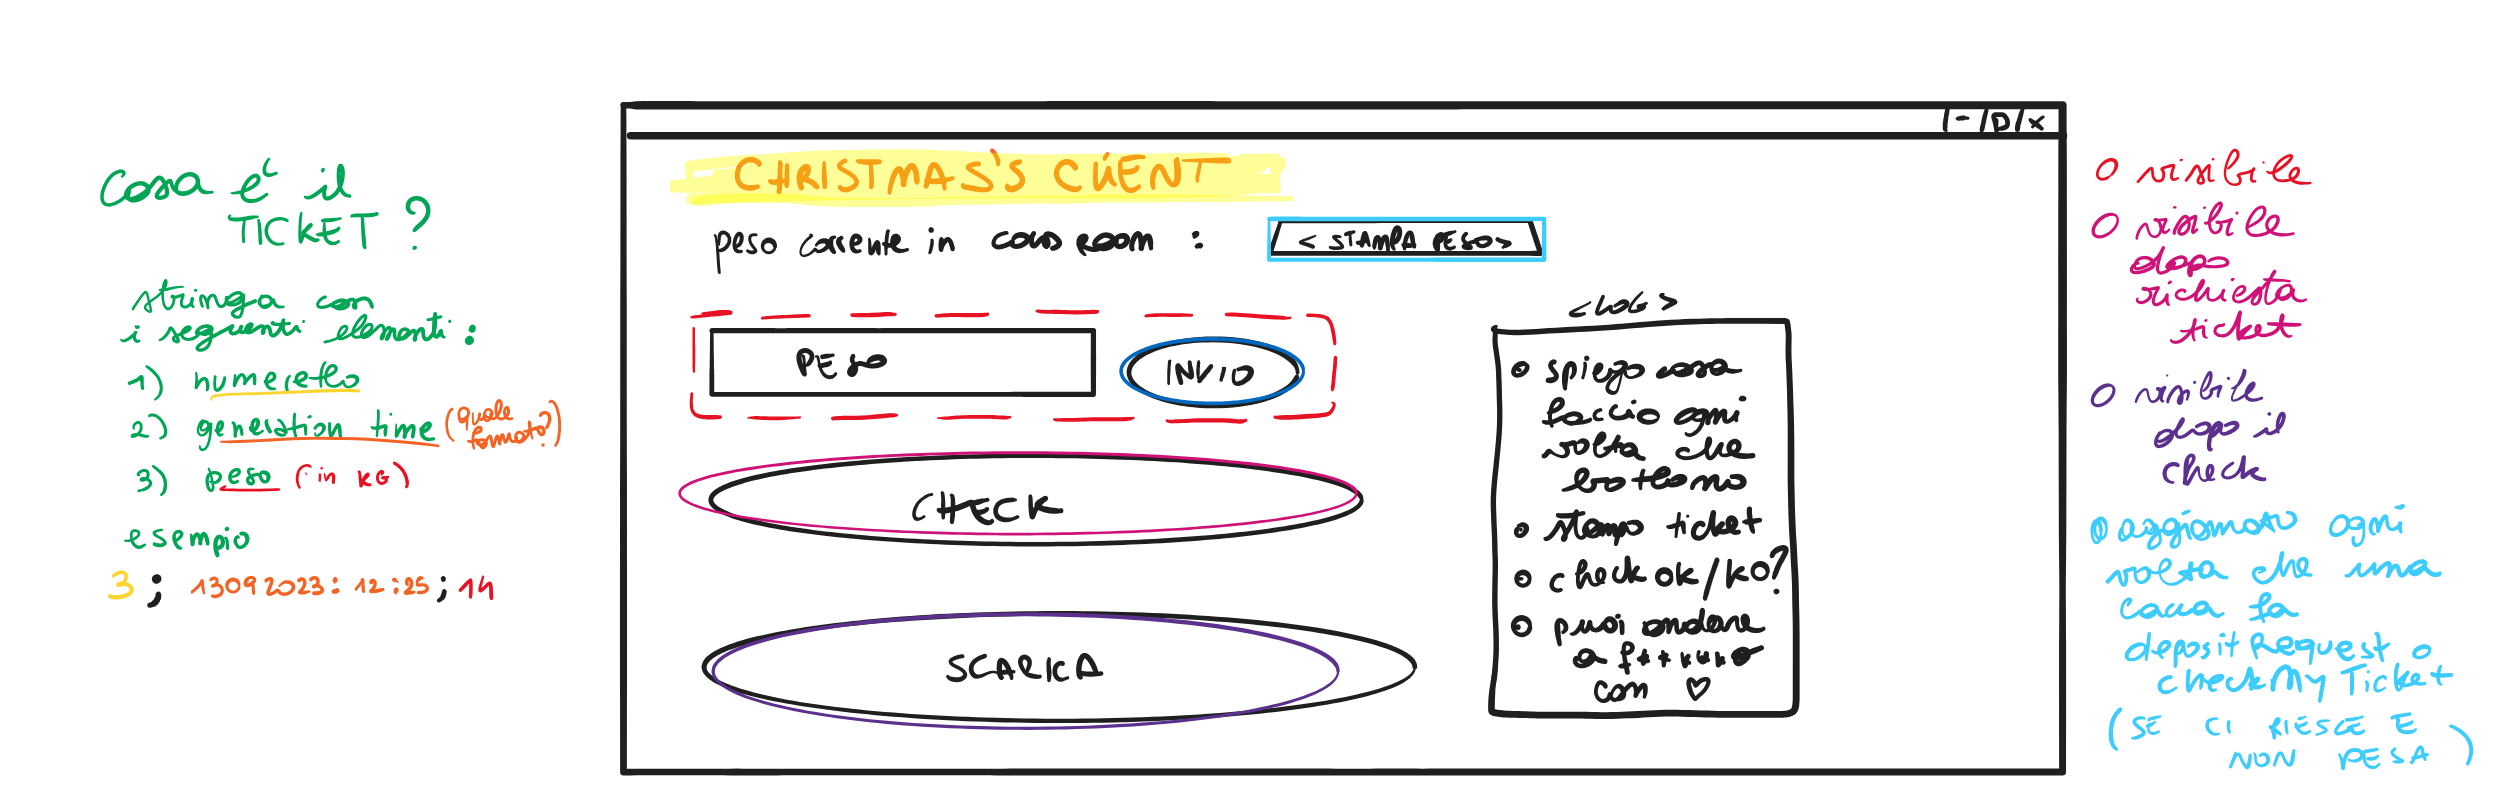 cosa è il
TICKET?
stringa con
i seguenti elementi:
1) numeretto
2) generation time (quale format.)
3) peso (in KG)
esempio
3; 13092023:12:23; 11
CHRISTMAS'S CLIENT
peso corrente in cold room :
< STAMPA PESO >
PESO
INVIO
CHECK
SCARICA
< log >
spiego cosa
faccio ogni
volta che
lo
stampo ticket
check OK/KO?
puoi andare
a f**k**e
con ♡
visibile
visibile
dopo
richiesta
ticket
visibile
dopo il
check
aggiornato ogni
volta che uno
caca la
depositRequest o
checkMyTicket
(SE CI RIESCE E
NON PESA)